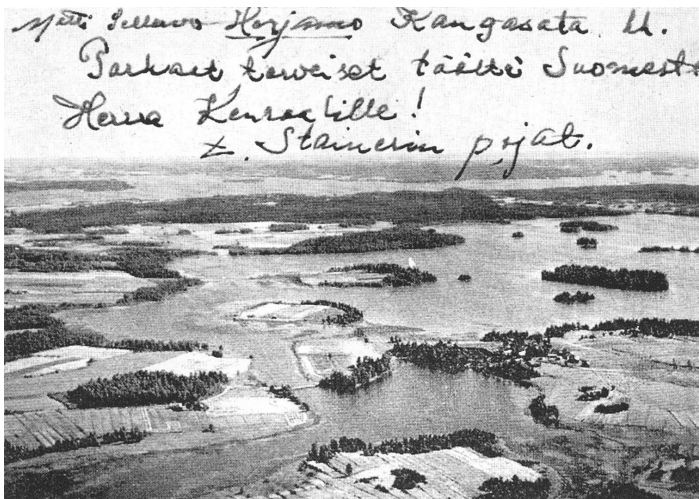 Herjamo Kangasala
Parhaat terveiset täältä Suomesta
Herra Kenraalille!
Z. Stainerin pojat.